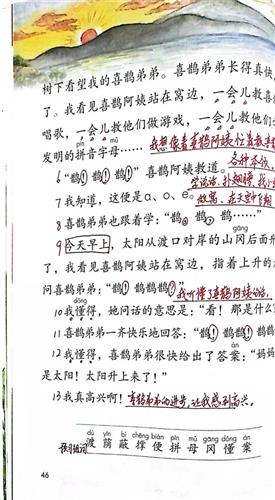 树下看望我的喜鹊弟弟。喜鹊弟弟长得真快
了。我看见喜鹊阿姨站在窝边,一会儿教喜
唱歌,一会儿教他们做游戏,一会儿教他们
pīn mǔ
发明的拼音字母……我想像着喜鹊阿姨忙着教
各种本领
6“鹊!鹊!鹊!”喜鹊阿姨教道。
学说话、扑翅膀、找小
7我知道,这便是a、o、e。做窝、在天空中飞翔
8喜鹊弟弟也跟着学:“鹊,鹊,鹊……”
gāng
9今天早上,太阳从渡口对岸的山冈后面升
了,我看见喜鹊阿姨站在窝边,指着上升的
问喜鹊弟弟:“鹊!鹊鹊鹊?”我听懂了喜鹊阿姨的话。
dǒng
10我懂得,她问话的意思是:“看!那是什么
11喜鹊弟弟一齐快乐地回答:“鹊!鹊鹊!鹊
àn
12我懂得,喜鹊弟弟很快给出了答案:“妈妈
是太阳!太阳升上来了!”
13我真高兴啊!喜鹊弟弟的进步,让我感到高兴。
dù yīn bì chēng biàn pīn mǔ gāng dǒng àn
渡 荫 蔽 撑 便 拼 母 冈 懂 案
46